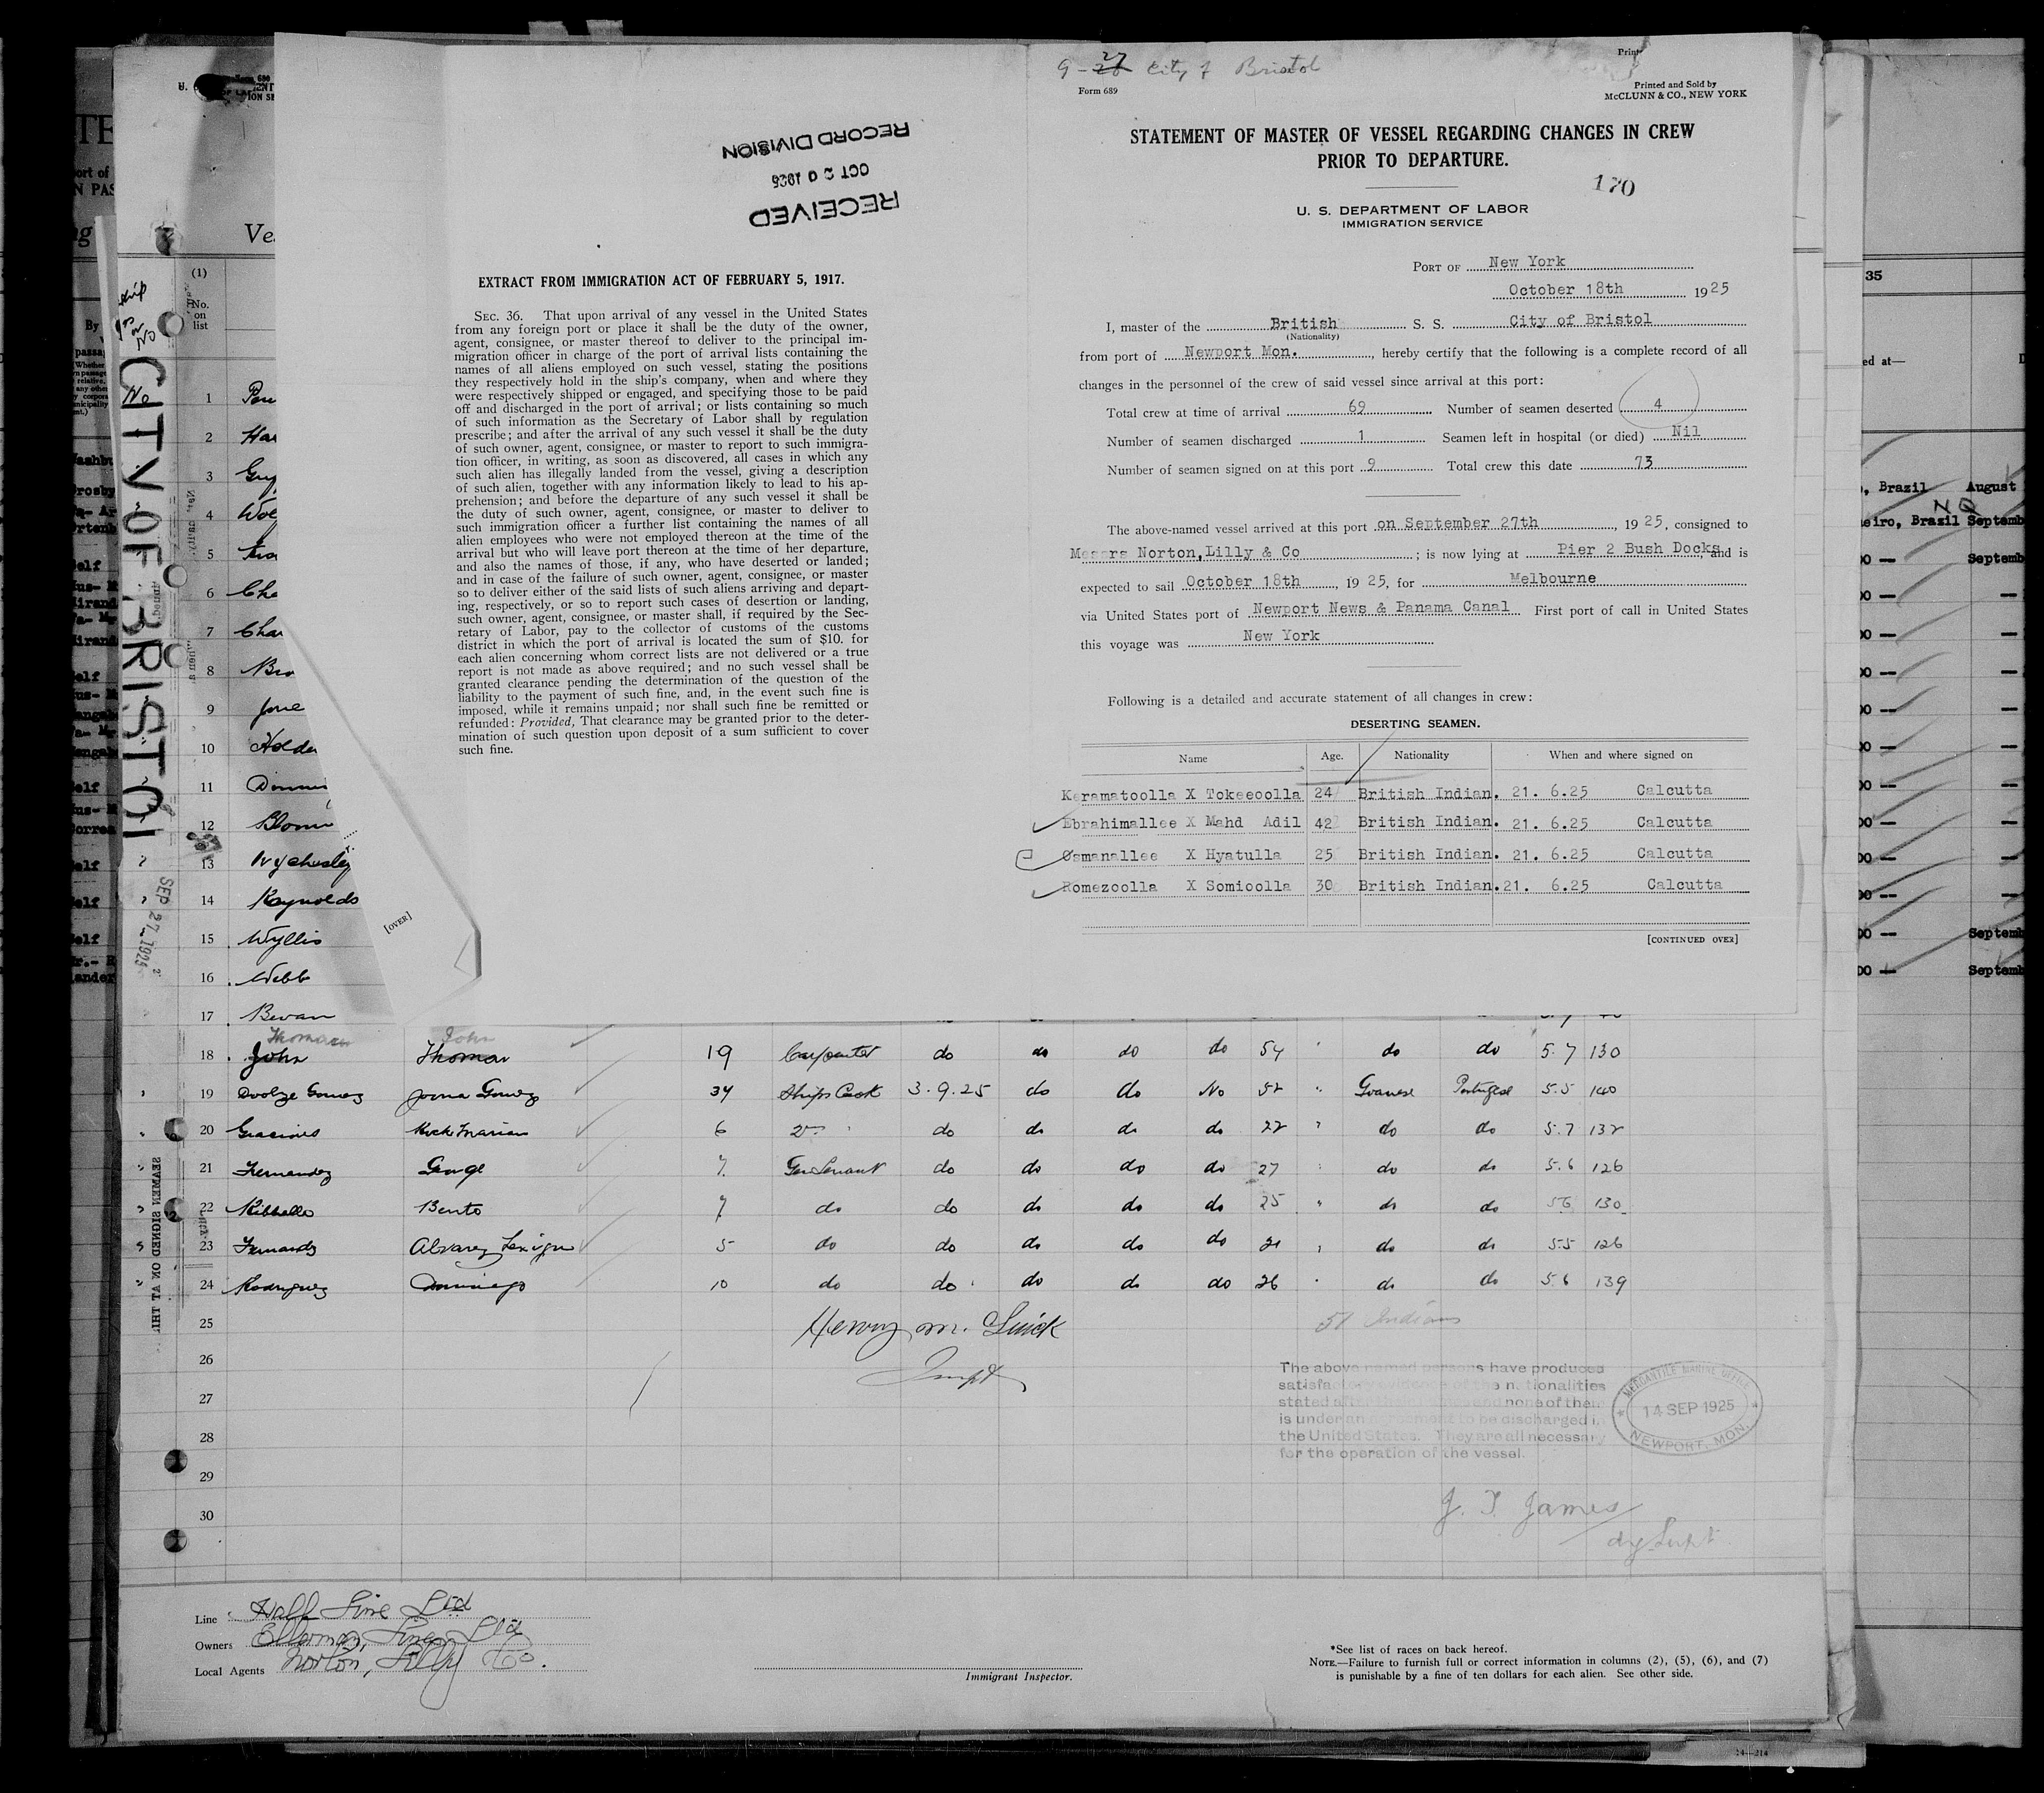 9-27 City of Bristol
Form 689
Printed and Sold by
McCLUNN & CO., NEW YORK
STATEMENT OF MASTER OF VESSEL REGARDING CHANGES IN CREW
PRIOR TO DEPARTURE.
170
U. S. DEPARTMENT OF LABOR
IMMIGRATION SERVICE
PORT OF New York
October 18th 1925
I, master of the British S. S. City of Bristol
(Nationality)
from port of Newport Mon. , hereby certify that the following is a complete record of all
changes in the personnel of the crew of said vessel since arrival at this port:
Total crew at time of arrival 69 Number of seamen deserted 4
Number of seamen discharged 1 Seamen left in hospital (or died) Nil
Number of seamen signed on at this port 9 Total crew this date 73
The above-named vessel arrived at this port on September 27th , 1925, consigned to
Messrs Norton,Lilly & Co ; is now lying at Pier 2 Bush Docks, and is
expected to sail October 18th , 1925, for Melbourne
via United States port of Newport News & Panama Canal First port of call in United States
this voyage was New York
Following is a detailed and accurate statement of all changes in crew:
DESERTING SEAMEN.
Name Age. Nationality When and where signed on
Keramatoolla X Tokeeoolla 24 British Indian. 21. 6.25 Calcutta
Ebrahimallee X Mahd Adil 42 British Indian. 21. 6.25 Calcutta
Osmanallee X Hyatulla 25 British Indian. 21. 6.25 Calcutta
Romezoolla X Somioolla 30 British Indian. 21. 6.25 Calcutta
[CONTINUED OVER]
RECEIVED
OCT 20 1925
RECORD DIVISION
EXTRACT FROM IMMIGRATION ACT OF FEBRUARY 5, 1917.
SEC. 36. That upon arrival of any vessel in the United States
from any foreign port or place it shall be the duty of the owner,
agent, consignee, or master thereof to deliver to the principal im-
migration officer in charge of the port of arrival lists containing the
names of all aliens employed on such vessel, stating the positions
they respectively hold in the ship's company, when and where they
were respectively shipped or engaged, and specifying those to be paid
off and discharged in the port of arrival; or lists containing so much
of such information as the Secretary of Labor shall by regulation
prescribe; and after the arrival of any such vessel it shall be the duty
of such owner, agent, consignee, or master to report to such immigra-
tion officer, in writing, as soon as discovered, all cases in which any
such alien has illegally landed from the vessel, giving a description
of such alien, together with any information likely to lead to his ap-
prehension; and before the departure of any such vessel it shall be
the duty of such owner, agent, consignee, or master to deliver to
such immigration officer a further list containing the names of all
alien employees who were not employed thereon at the time of the
arrival but who will leave port thereon at the time of her departure,
and also the names of those, if any, who have deserted or landed;
and in case of the failure of such owner, agent, consignee, or master
so to deliver either of the said lists of such aliens arriving and depart-
ing, respectively, or so to report such cases of desertion or landing,
such owner, agent, consignee, or master shall, if required by the Sec-
retary of Labor, pay to the collector of customs of the customs
district in which the port of arrival is located the sum of $10. for
each alien concerning whom correct lists are not delivered or a true
report is not made as above required; and no such vessel shall be
granted clearance pending the determination of the question of the
liability to the payment of such fine, and, in the event such fine is
imposed, while it remains unpaid; nor shall such fine be remitted or
refunded: Provided, That clearance may be granted prior to the deter-
mination of such question upon deposit of a sum sufficient to cover
such fine.
[OVER]
CITY OF BRISTOL
SEP 27 1925
SEAMEN SIGNED ON AT THI
(1)
No.
on
list
1
2
3
4
5
6
7
8
9
10
11
12
13 Wycherley
14 Reynolds
15 Wyllis
16 Webb
17 Bevan
Thomas John
18 John Thomas 19 Carpenter do do do do 54 do do 5.7 130
19 Gomez 34 Ships Cook 3.9.25 do do No 52 Goanese Portugese 5.5 140
20 6 do do do do 22 do do 5.7 132
21 Fernandez George 7 Gen Servant do do do do 27 do do 5.6 126
22 Ribbello Bento 7 do do do do do 25 do do 56 130
23 Fernandz Alvarez 5 do do do do do 21 do do 5.5 126
24 Rodriguez Domingo 10 do do do do do 26 do do 56 139
25
26
27
28
29
30
Henry M.
51 Indians
The above named persons have produced
satisfactory evidence of the nationalities
stated after their names and none of them
is under an agreement to be discharged in
the United States. They are all necessary
for the operation of the vessel.
MERCANTILE MARINE OFFICE
14 SEP 1925
NEWPORT, MON.
J. T. James
dy Supt
Line Hall Line Ltd
Owners Ellerman Lines Ltd
Local Agents Norton, Lilly & Co.
Immigrant Inspector.
*See list of races on back hereof.
NOTE.—Failure to furnish full or correct information in columns (2), (5), (6), and (7)
is punishable by a fine of ten dollars for each alien. See other side.
35
ed at—
, Brazil August
eiro, Brazil Septemb
Septemb
Septemb
Septemb
14—214